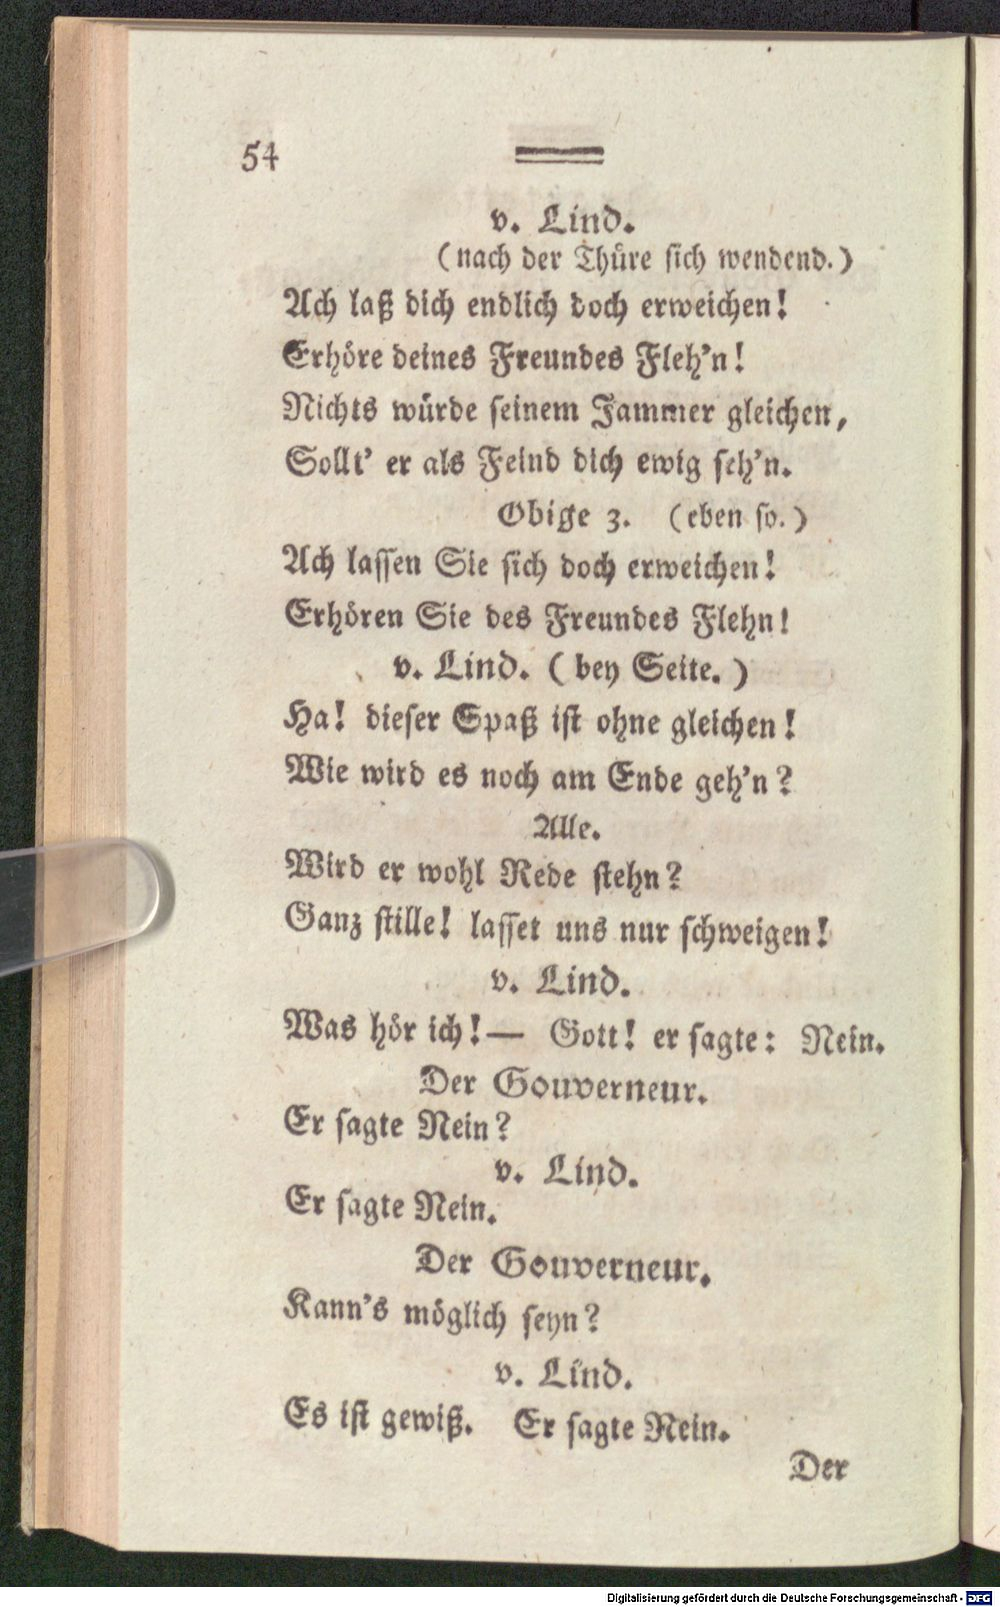 54
v. Lind.
(nach der Thüre sich wendend.)
Ach laß dich endlich doch erweichen!
Erhöre deines Freundes Fleh'n!
Nichts würde seinem Jammer gleichen,
Sollt' er als Feind dich ewig seh'n.
Obige 3. (eben so.)
Ach lassen Sie sich doch erweichen!
Erhören Sie des Freundes Flehn!
v. Lind. (bey Seite.)
Ha! dieser Spaß ist ohne gleichen!
Wie wird es noch am Ende geh'n?
Alle.
Wird er wohl Rede stehn?
Ganz stille! lasset uns nur schweigen!
v. Lind.
Was hör ich!— Gott! er sagte: Nein.
Der Gouverneur.
Er sagte Nein?
v. Lind.
Er sagte Nein.
Der Gouverneur.
Kann's möglich seyn?
v. Lind.
Es ist gewiß. Er sagte Nein.
Der
Digitalisierung gefördert durch die Deutsche Forschungsgemeinschaft - DFG